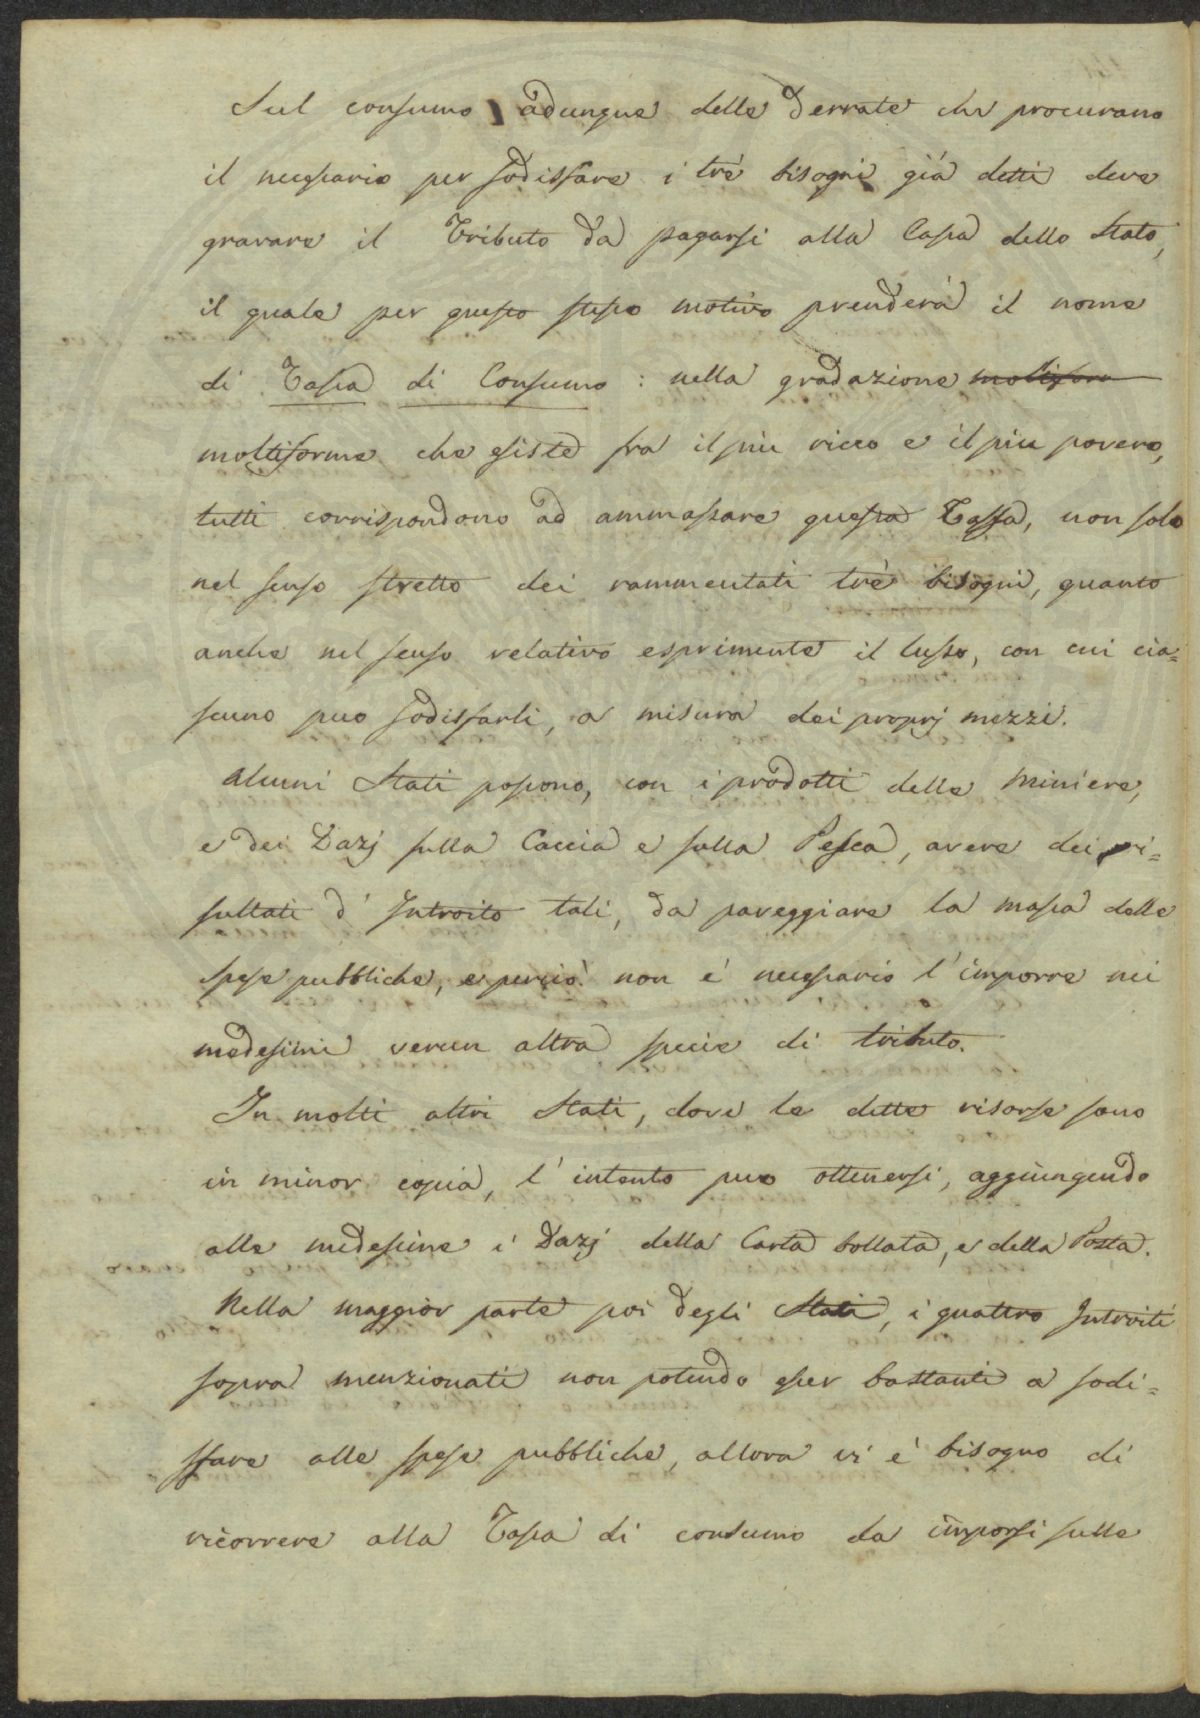 Sul consumo adunque delle Derrate che procurano
il necessario per sodisfare i tre bisogni già detti deve
gravare il Tributo da pagarsi alla Cassa dello Stato,
il quale per questo stesso motivo prenderà il nome
di Tassa di Consumo: nella gradazione moltiform
moltiforme che esiste fra il più ricco e il più povero,
tutti corrispondono ad ammassare questa Tassa, non solo
nel senso stretto dei rammentati trè bisogni, quanto
anche nel senso relativo esprimente il lusso, con cui cia=
scuno puo sodisfarli, a misura dei proprj mezzi.
Alcuni Stati possono, con i prodotti delle Miniere,
e dei Dazj sulla Caccia e sulla Pesca, avere dei ri=
sultati d'Introito tali, da pareggiare la massa delle
spese pubbliche, e perciò non é necessario l'imporre nei
medesimi verun altra specie di tributo.
In molti altri Stati, dove le dette risorse sono
in minor copia, l'intento puo ottenersi, aggiungendo
alle medesime i Dazj della Carta bollata, e della Posta.
Nella maggior parte poi degli Stati, i quattro Introiti
sopra menzionati non potendo esser bastanti a sodi=
sfare alle spese pubbliche, allora vi é bisogno di
ricorrere alla Tassa di consumo da imporsi sulle